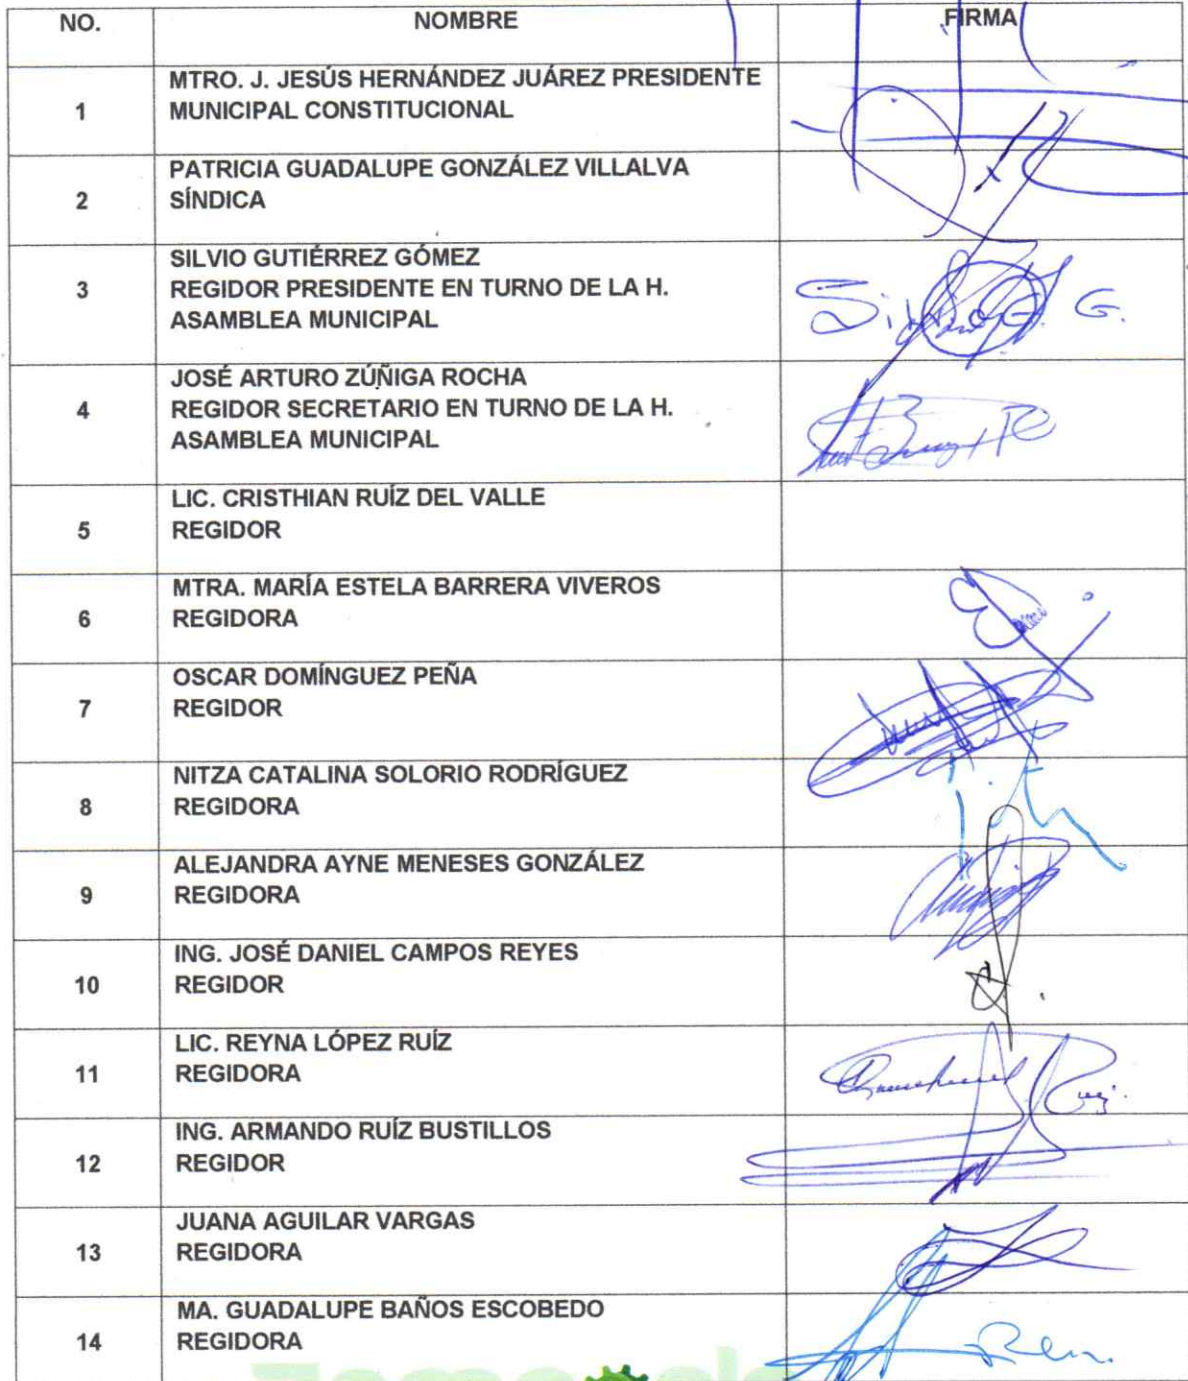 NO. NOMBRE FIRMA
1 MTRO. J. JESÚS HERNÁNDEZ JUÁREZ PRESIDENTE
MUNICIPAL CONSTITUCIONAL
2 PATRICIA GUADALUPE GONZÁLEZ VILLALVA
SÍNDICA
3 SILVIO GUTIÉRREZ GÓMEZ
REGIDOR PRESIDENTE EN TURNO DE LA H.
ASAMBLEA MUNICIPAL
Silvio G. G.
4 JOSÉ ARTURO ZÚÑIGA ROCHA
REGIDOR SECRETARIO EN TURNO DE LA H.
ASAMBLEA MUNICIPAL
5 LIC. CRISTHIAN RUÍZ DEL VALLE
REGIDOR
6 MTRA. MARÍA ESTELA BARRERA VIVEROS
REGIDORA
7 OSCAR DOMÍNGUEZ PEÑA
REGIDOR
8 NITZA CATALINA SOLORIO RODRÍGUEZ
REGIDORA
9 ALEJANDRA AYNE MENESES GONZÁLEZ
REGIDORA
10 ING. JOSÉ DANIEL CAMPOS REYES
REGIDOR
11 LIC. REYNA LÓPEZ RUÍZ
REGIDORA
12 ING. ARMANDO RUÍZ BUSTILLOS
REGIDOR
13 JUANA AGUILAR VARGAS
REGIDORA
14 MA. GUADALUPE BAÑOS ESCOBEDO
REGIDORA